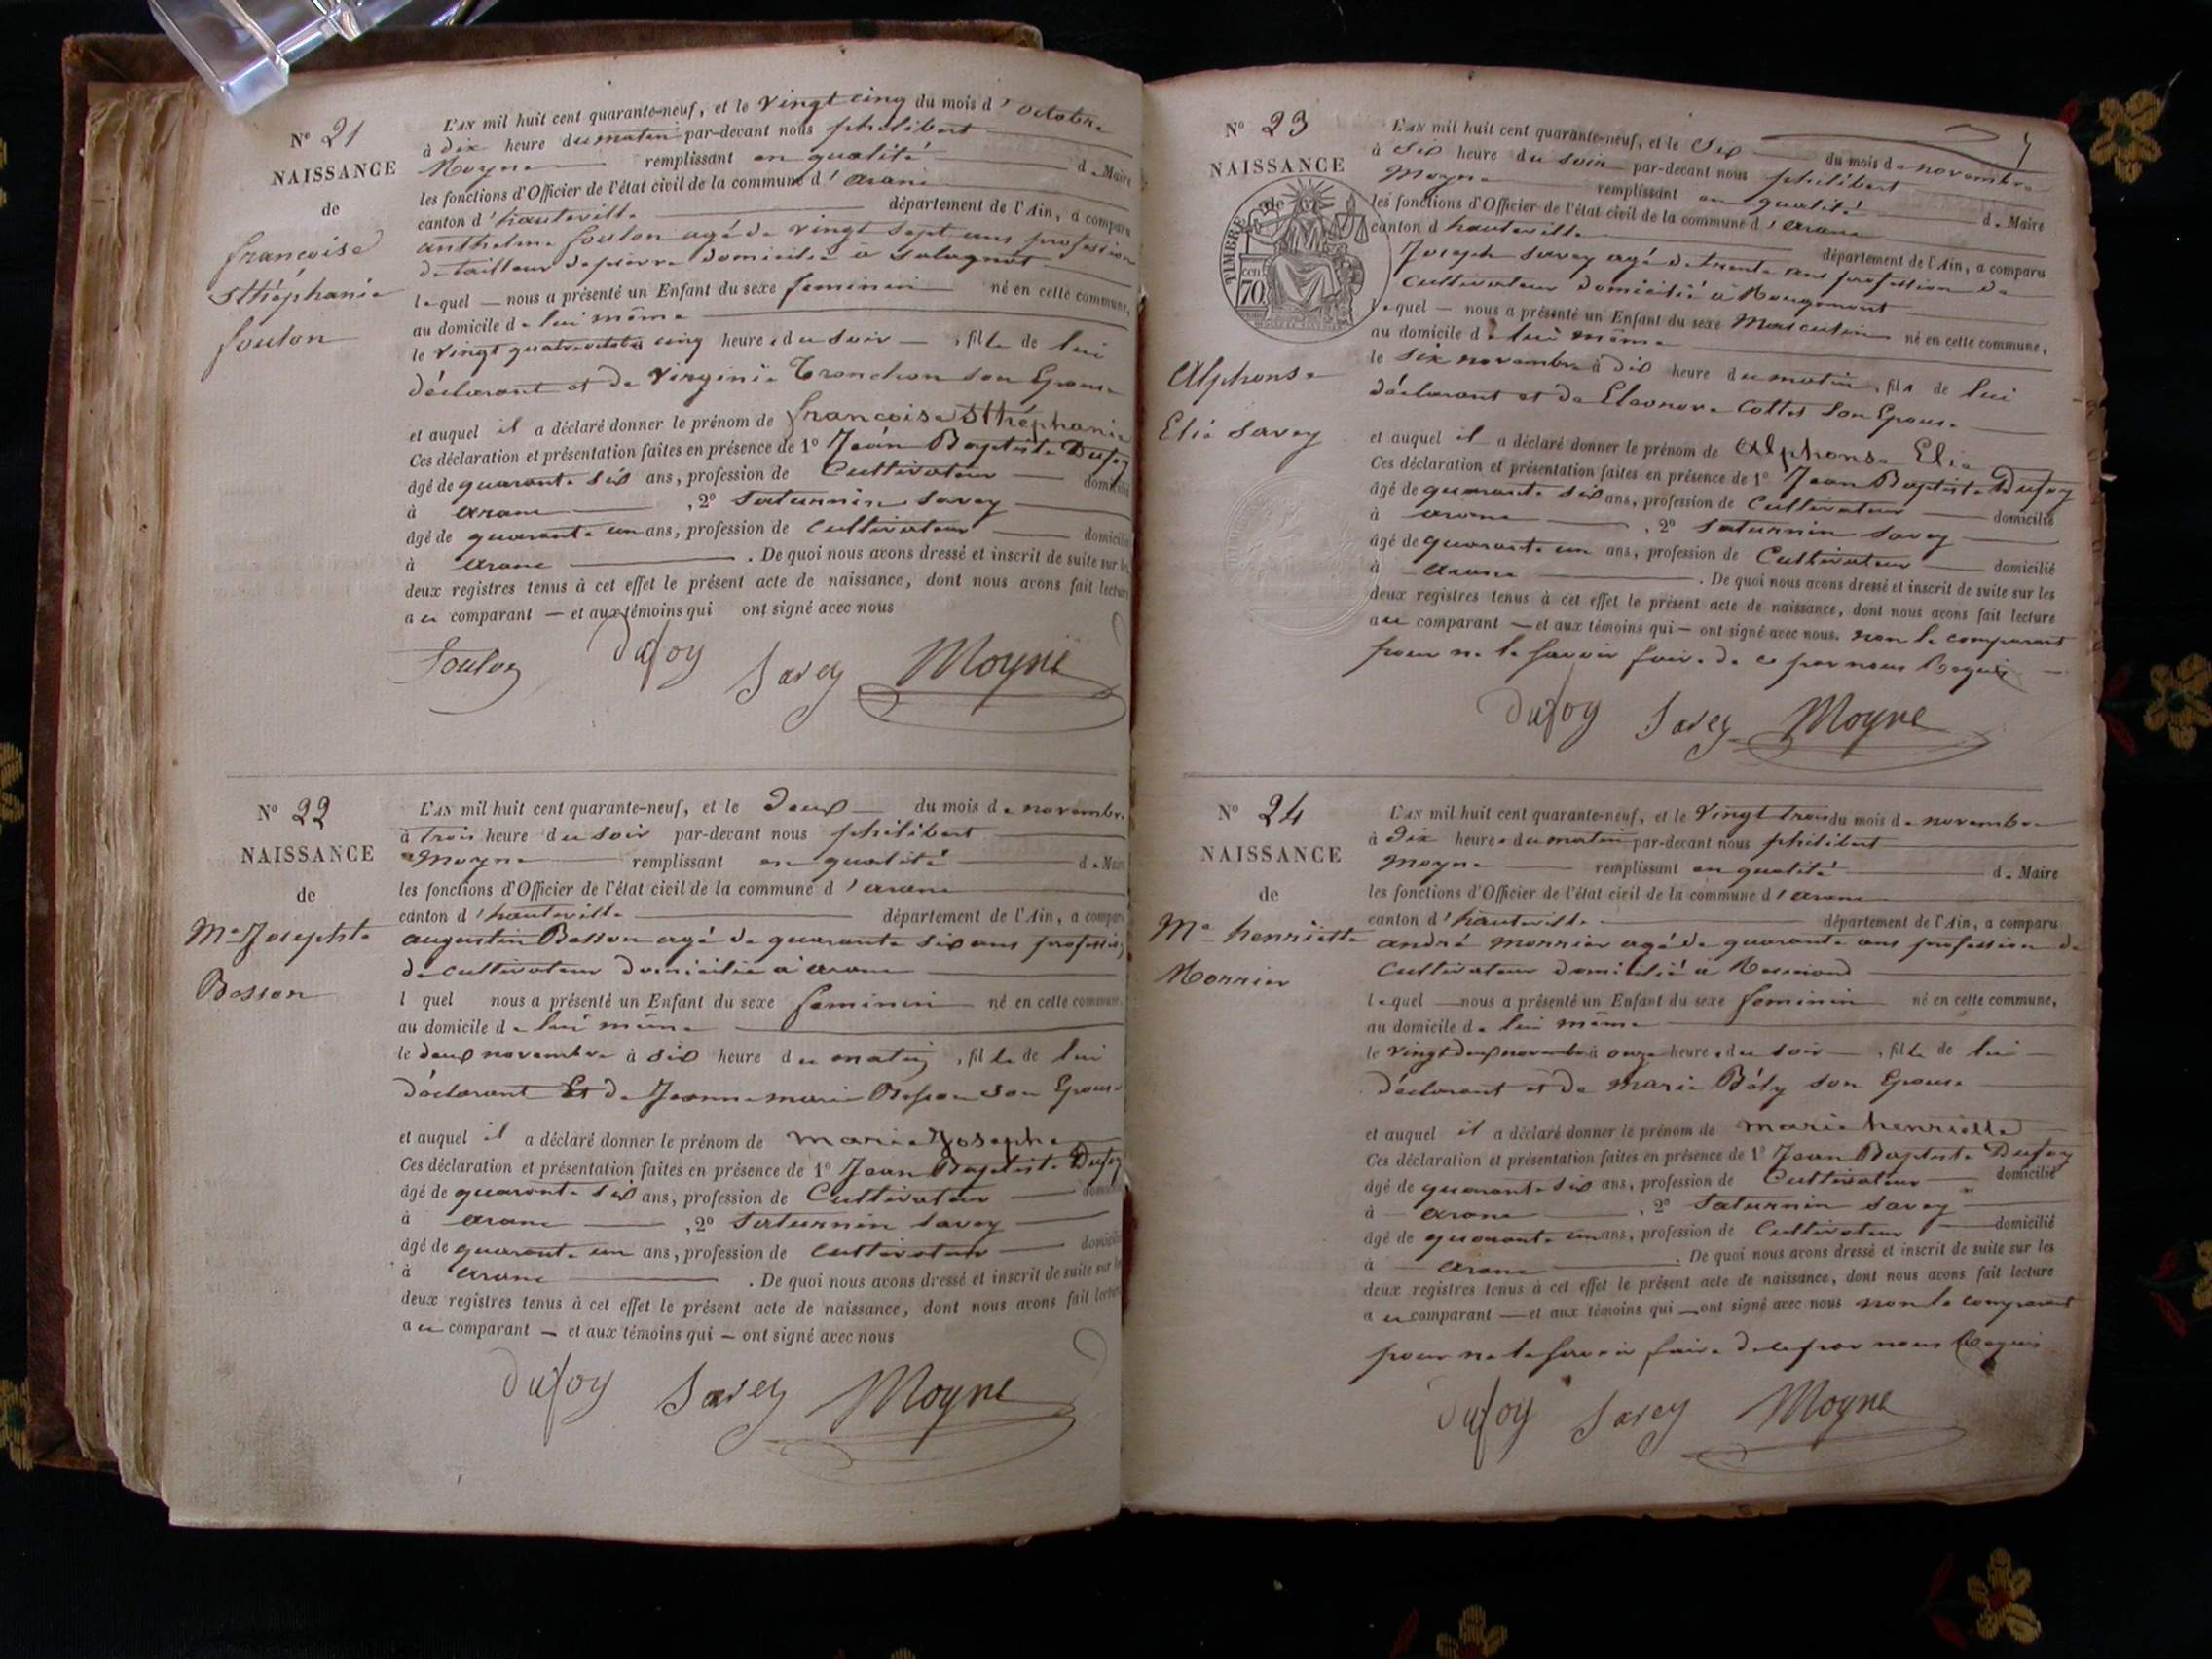 N° 21
NAISSANCE
de
francoise
Sthéphanie
foulon
L'AN mil huit cent quarante-neuf, et le vingt cinq du mois d'octobre
à dix heure du matin par-devant nous philibert
Moyne remplissant en qualité de Maire
les fonctions d'Officier de l'état civil de la commune d'arane
canton d'hauteville département de l'Ain, a comparu
anthelme foulon agé de vingt sept ans profession
de tailleur de pierre domicilié à
lequel — nous a présenté un Enfant du sexe feminin né en cette commune,
au domicile de lui même
le vingt quatre octobre cinq heures du soir —, fille de lui
déclarant et de Virginie Tronchon son Epouse
et auquel il a déclaré donner le prénom de francoise Sthéphanie
Ces déclaration et présentation faites en présence de 1° Jean Baptiste Dufoy
âgé de quarante six ans, profession de Cultivateur — domicilié
à arane —, 2° Saturnin Savey
âgé de quarante un ans, profession de Cultivateur — domicilié
à arane — . De quoi nous avons dressé et inscrit de suite sur les
deux registres tenus à cet effet le présent acte de naissance, dont nous avons fait lecture
au comparant — et aux témoins qui ont signé avec nous
foulon Dufoy Savey Moyne
N° 22
NAISSANCE
de
Me Josephte
Bosson
L'AN mil huit cent quarante-neuf, et le deux — du mois de novembre
à trois heure du soir par-devant nous philibert
Moyne remplissant en qualité de Maire
les fonctions d'Officier de l'état civil de la commune d'arane
canton d'hauteville département de l'Ain, a comparu
augustin Bosson agé de quarante six ans profession
de cultivateur domicilié à arane
l quel nous a présenté un Enfant du sexe feminin né en cette commune,
au domicile de lui même
le deux novembre à six heure du matin, fille de lui
déclarant Et de Jeanne marie son Epouse
et auquel il a déclaré donner le prénom de marie Josephe
Ces déclaration et présentation faites en présence de 1° Jean Baptiste Dufoy
âgé de quarante six ans, profession de Cultivateur — domicilié
à arane —, 2° Saturnin Savey
âgé de quarante un ans, profession de cultivateur — domicilié
à arane — . De quoi nous avons dressé et inscrit de suite sur les
deux registres tenus à cet effet le présent acte de naissance, dont nous avons fait lecture
au comparant — et aux témoins qui — ont signé avec nous
Dufoy Savey Moyne
N° 23
NAISSANCE
TIMBRE
70 cen
Alphonse
Elie Savey
L'AN mil huit cent quarante-neuf, et le Six — du mois de novembre
à Six heure du soir par-devant nous philibert
Moyne remplissant en qualité de Maire
les fonctions d'Officier de l'état civil de la commune d'arane
canton d hauteville département de l'Ain, a comparu
Joseph Savey agé de trente ans profession de
Cultivateur domicilié à Rougemont
lequel — nous a présenté un Enfant du sexe Masculin né en cette commune,
au domicile de lui même
le six novembre à dix heure du matin, fils de lui
déclarant et de Eleonore Collet Son Epouse
et auquel il a déclaré donner le prénom de Alphonse Elie
Ces déclaration et présentation faites en présence de 1° Jean Baptiste Dufoy
âgé de quarante six ans, profession de Cultivateur — domicilié
à arane —, 2° Saturnin Savey
âgé de quarante un ans, profession de Cultivateur — domicilié
à arane — . De quoi nous avons dressé et inscrit de suite sur les
deux registres tenus à cet effet le présent acte de naissance, dont nous avons fait lecture
au comparant — et aux témoins qui — ont signé avec nous. non le comparant
pour ne le Savoir faire de ce par nous Requis —
Dufoy Savey Moyne
N° 24
NAISSANCE
de
Me henriette
Monnier
L'AN mil huit cent quarante-neuf, et le vingt trois du mois de novembre
à dix heures du matin par-devant nous philibert
Moyne remplissant en qualité de Maire
les fonctions d'Officier de l'état civil de la commune d'arane
canton d'hauteville département de l'Ain, a comparu
andré monnier agé de quarante ans profession de
Cultivateur domicilié à
lequel — nous a présenté un Enfant du sexe feminin né en cette commune,
au domicile de lui même
le vingt deux novembre à onze heures du soir —, fille de lui —
déclarant et de marie Bély son Epouse
et auquel il a déclaré donner le prénom de marie henriette
Ces déclaration et présentation faites en présence de 1° Jean Baptiste Dufoy
âgé de quarante six ans, profession de Cultivateur — domicilié
à — arane —, 2° Saturnin Savey
âgé de quarante un ans, profession de Cultivateur — domicilié
à — arane — . De quoi nous avons dressé et inscrit de suite sur les
deux registres tenus à cet effet le présent acte de naissance, dont nous avons fait lecture
au comparant — et aux témoins qui — ont signé avec nous non le comparant
pour ne le savoir faire de ce par nous Requis
Dufoy Savey Moyne